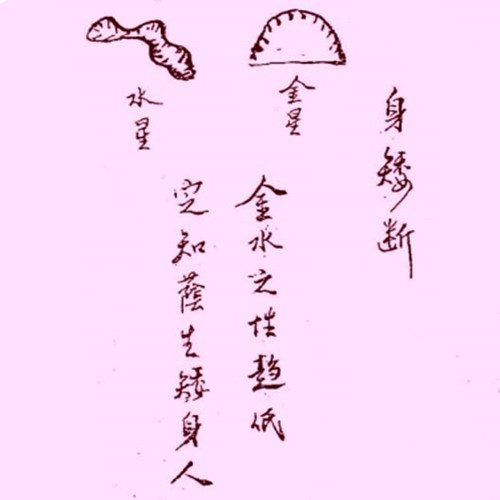 身矮断
金星
金水之性趋低
水星
定知蔭生矮身人